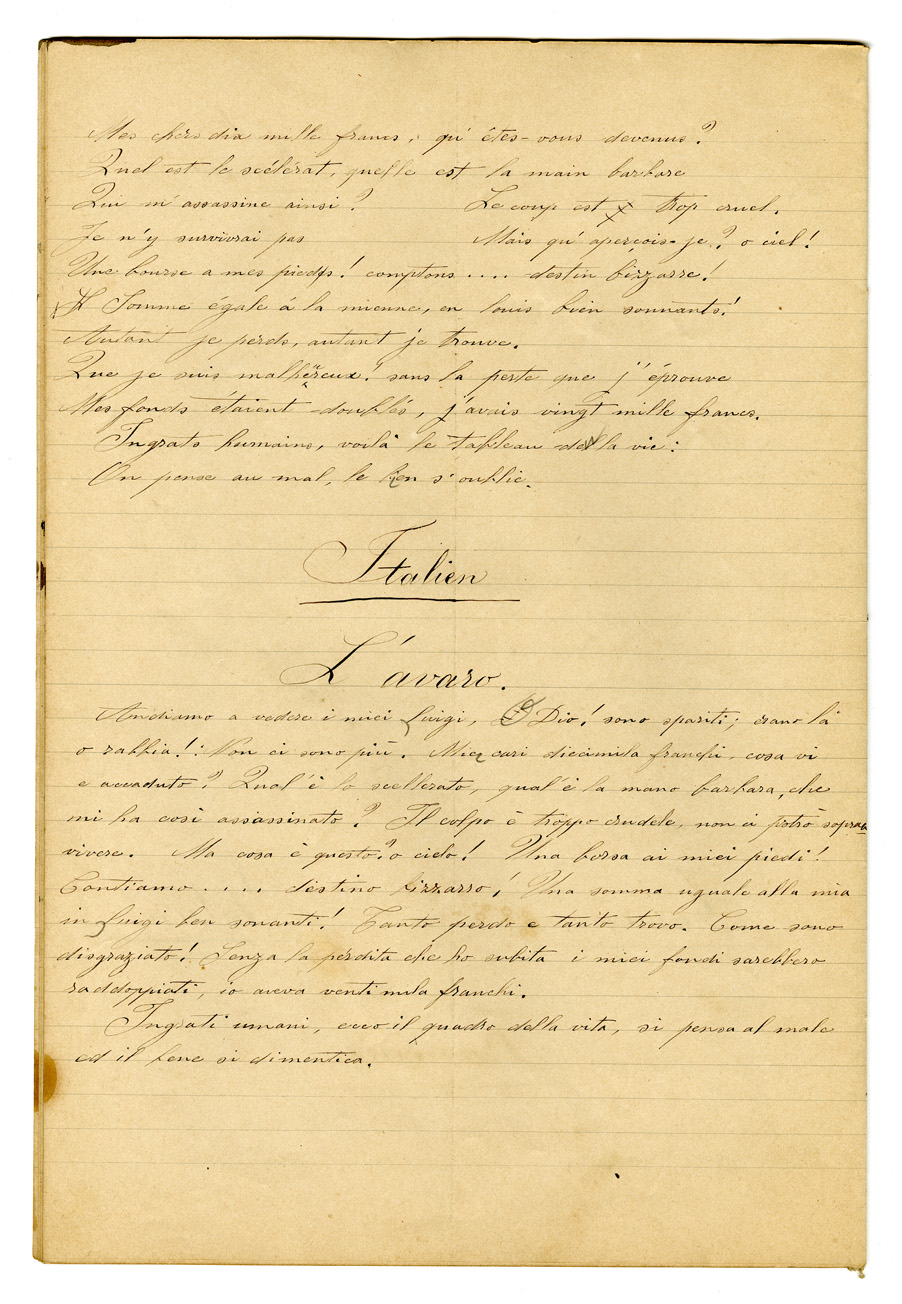 Mes chers dix mille francs, qu' êtes-vous devenus?
Quel est le scélérat, quelle est la main barbare
Qui m'assassine ainsi? Le coup est trop cruel.
Je n'y survivrai pas Mais qu'aperçois-je? o ciel!
Une bourse a mes pieds! comptons .... destin bizzarre!
Somme égale à la mienne, en louis bien sonnants!
Autant je perds, autant je trouve.
Que je suis malheureux! sans la perte que j'éprouve
Mes fonds étaient doublés, j'avais vingt mille francs.
Ingrats humains, voilà le tableau de la vie:
On pense au mal, le bien s'oublie.
Italien
L'avaro.
Andiamo a vedere i miei Luigi, O Dio! sono spariti; erano là
o rabbia!: Non ci sono più. Miei cari diecimila franchi, cosa vi
e accaduto? Qual'è lo scellerato, qual'è la mano barbara, che
mi ha così assassinato? Il colpo è troppo crudele, non ci potrò soprav
vivere. Ma cosa è questo? o cielo! Una borsa ai miei piedi!
Contiamo .... destino bizzarro! Una somma uguale alla mia
in Luigi ben sonanti! Tanto perdo e tanto trovo. Come sono
disgraziato! Senza la perdita che ho subita i miei fondi sarebbero
raddoppiati, io aveva venti mila franchi.
Ingrati umani, ecco il quadro della vita, si pensa al male
ed il bene si dimentica.